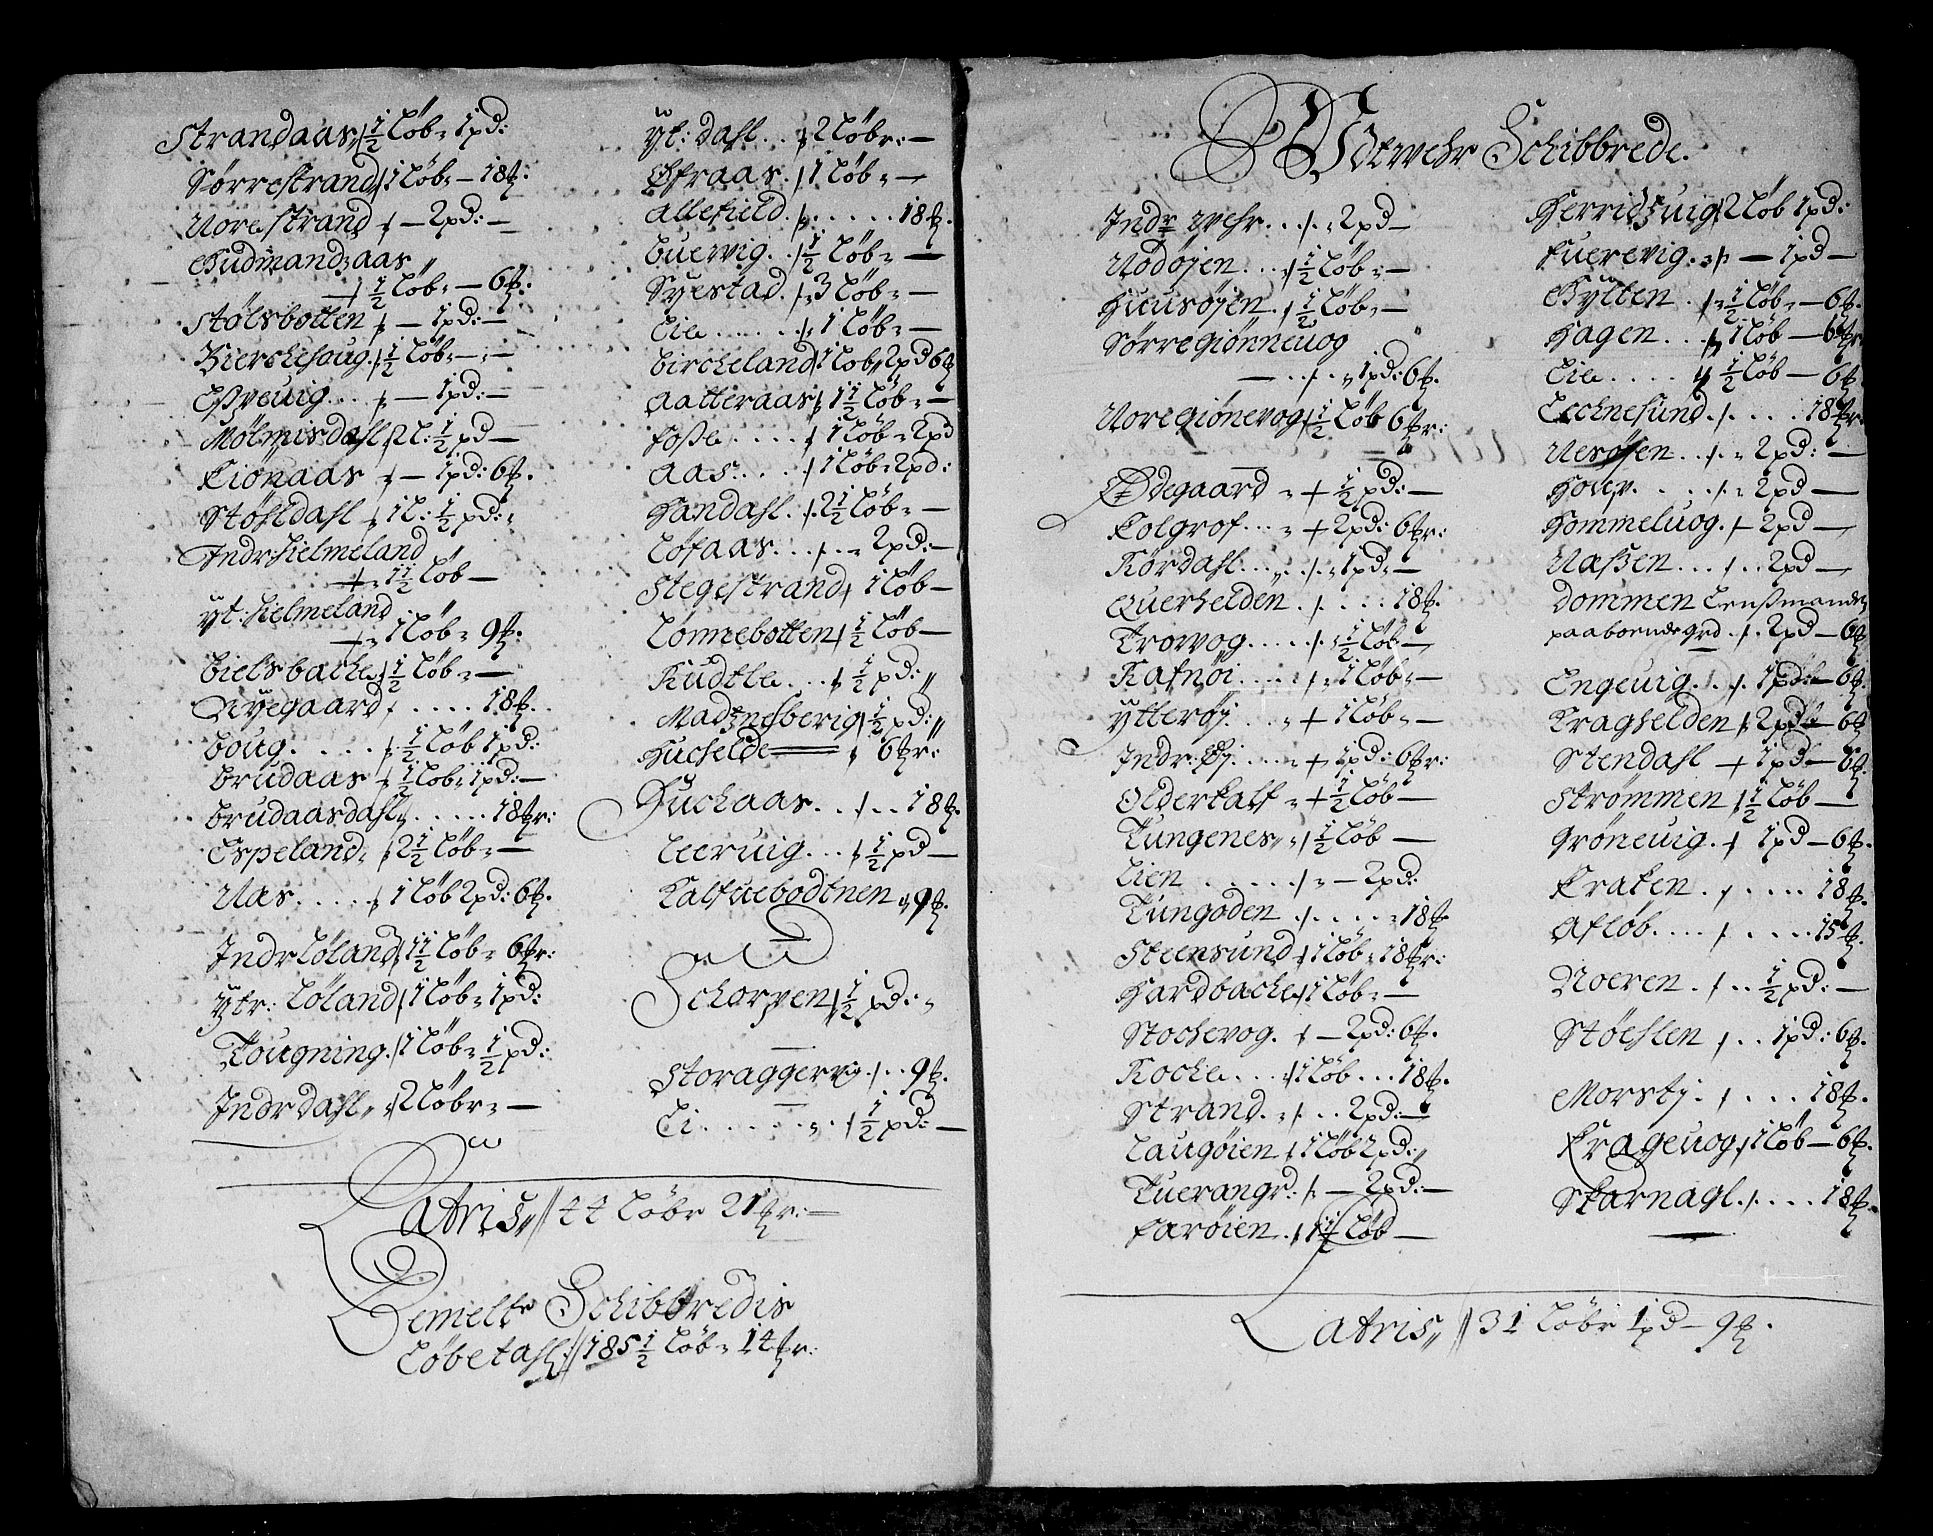 Strandaas ½ löb 1 pd:
Sørrestrand 1 löb – 18 ℔r:
Norestrand – 2 pd: –
Gudmandzaas
½ löb – 6 ℔r:
Stølsbotten – 1 pd: –
Bierchehoug ½ löb –
Eßeuig – 1 pd: –
Mølmisdahl 2 l: ½ pd –
Lionaas – 1 pd: 6 ℔r.
Støhldahl 1 l: ½ pd:
Indr hielmeland
1½ löb –
Yt: hielmeland
1 löb 9 ℔r:
Bielsbache ½ löb –
Nyegaard 18 ℔r.
Boug ½ löb 1 pd:
Brudaas ½ löb 1 pd: –
Brudaasdahl 18 ℔r:
Espeland 2½ löb –
Aas 1 löb 2 pd: 6 ℔r.
Indr Løland 1½ löb 6 ℔r:
Ytr: Løland 1 löb 1 pd:
Tougning 1 löb ½ pd:
Indr dahl 2 löbr –
Yt: dahl 2 löbr: –
Øfraas 1 löb –
Allefield 18 ℔r.
Buervig ½ löb –
Syestad 3 löb –
Lie 1 löb –
Bircheland 1 löb 2 pd 6 ℔r
Aatteraas 1½ löb –
Foße 1 löb 2 pd
Aas 1 löb 2 pd:
Handahl 2½ löb –
Löfaas 2 pd: –
Stegestrand 1 löb –
Lönnebotten ½ löb –
Rudtle ½ pd:
Madznesberig ½ pd:
Huchelde 6 ℔r:
Huchaas 18 ℔r.
Leeruig ½ pd –
Kalfuebodtnen 9 ℔r.
Schorpen ½ pd:
Storaggervig 9 ℔r.
Li ½ pd: –
Latris 44 löbr 21 ℔r: –
Bemelte Schibbredis
Löbetahl 185½ löb 14 ℔r:
Udtwehr Schibbrede.
Indr wehr 2 pd –
Nodøjen ½ löb –
Huusøjen ½ löb –
Sørregiönneuog
1 pd: 6 ℔r.
Noregiönevog ½ löb 6 ℔r:
Ødegaard ½ pd: –
Kolgrof 2 pd: 6 ℔r:
Rördahl 1 pd: –
Querhelden 18 ℔r.
Trovog ½ löb –
Ratnöi 1 löb –
Ytterøj 1 löb –
Indr: Øj 1 pd: 6 ℔r:
Olderkalf ½ löb –
Tungenes ½ löb –
Lien – 2 pd:
Tungoden 18 ℔r
Steensund 1 löb 18 ℔r:
Hardbache 1 löb –
Stochevog – 2 pd: 6 ℔r.
Roche 1 löb 18 ℔r.
Strand 2 pd: –
Laugøien 1 löb 2 pd:
Tuerangr: – 2 pd: –
Farøien 1½ löb –
Herridzuig 2 löb 1 pd:
Tuerevig – 1 pd –
Hylten ½ löb – 6 ℔r.
Hagen 1 löb – 6 ℔r
Lie ½ löb – 6 ℔r.
Lechnesund 18 ℔r:
Nesøjen 2 pd: –
Hover 2 pd –
Hommeluog 2 pd –
Naßen 2 pd –
Dommen Lenßmandens
paaboende grd 2 pd – 6 ℔r
Engeuig 1 pd: – 6 ℔r.
Kraghelden 2 pd – 6 ℔r
Stendahl 1 pd – 6 ℔r.
Strømmen ½ löb –
Gröneuig 1 pd – 6 ℔r.
Kraken 18 ℔r.
Afløb 15 ℔r.
Noeren ½ pd: –
Støehlen 1 pd: 6 ℔r.
Morstj 18 ℔r.
Krageuog 1 löb – 6 ℔r.
Skarnagl 18 ℔r.
Latris 31 löbr 1 pd – 9 ℔r.